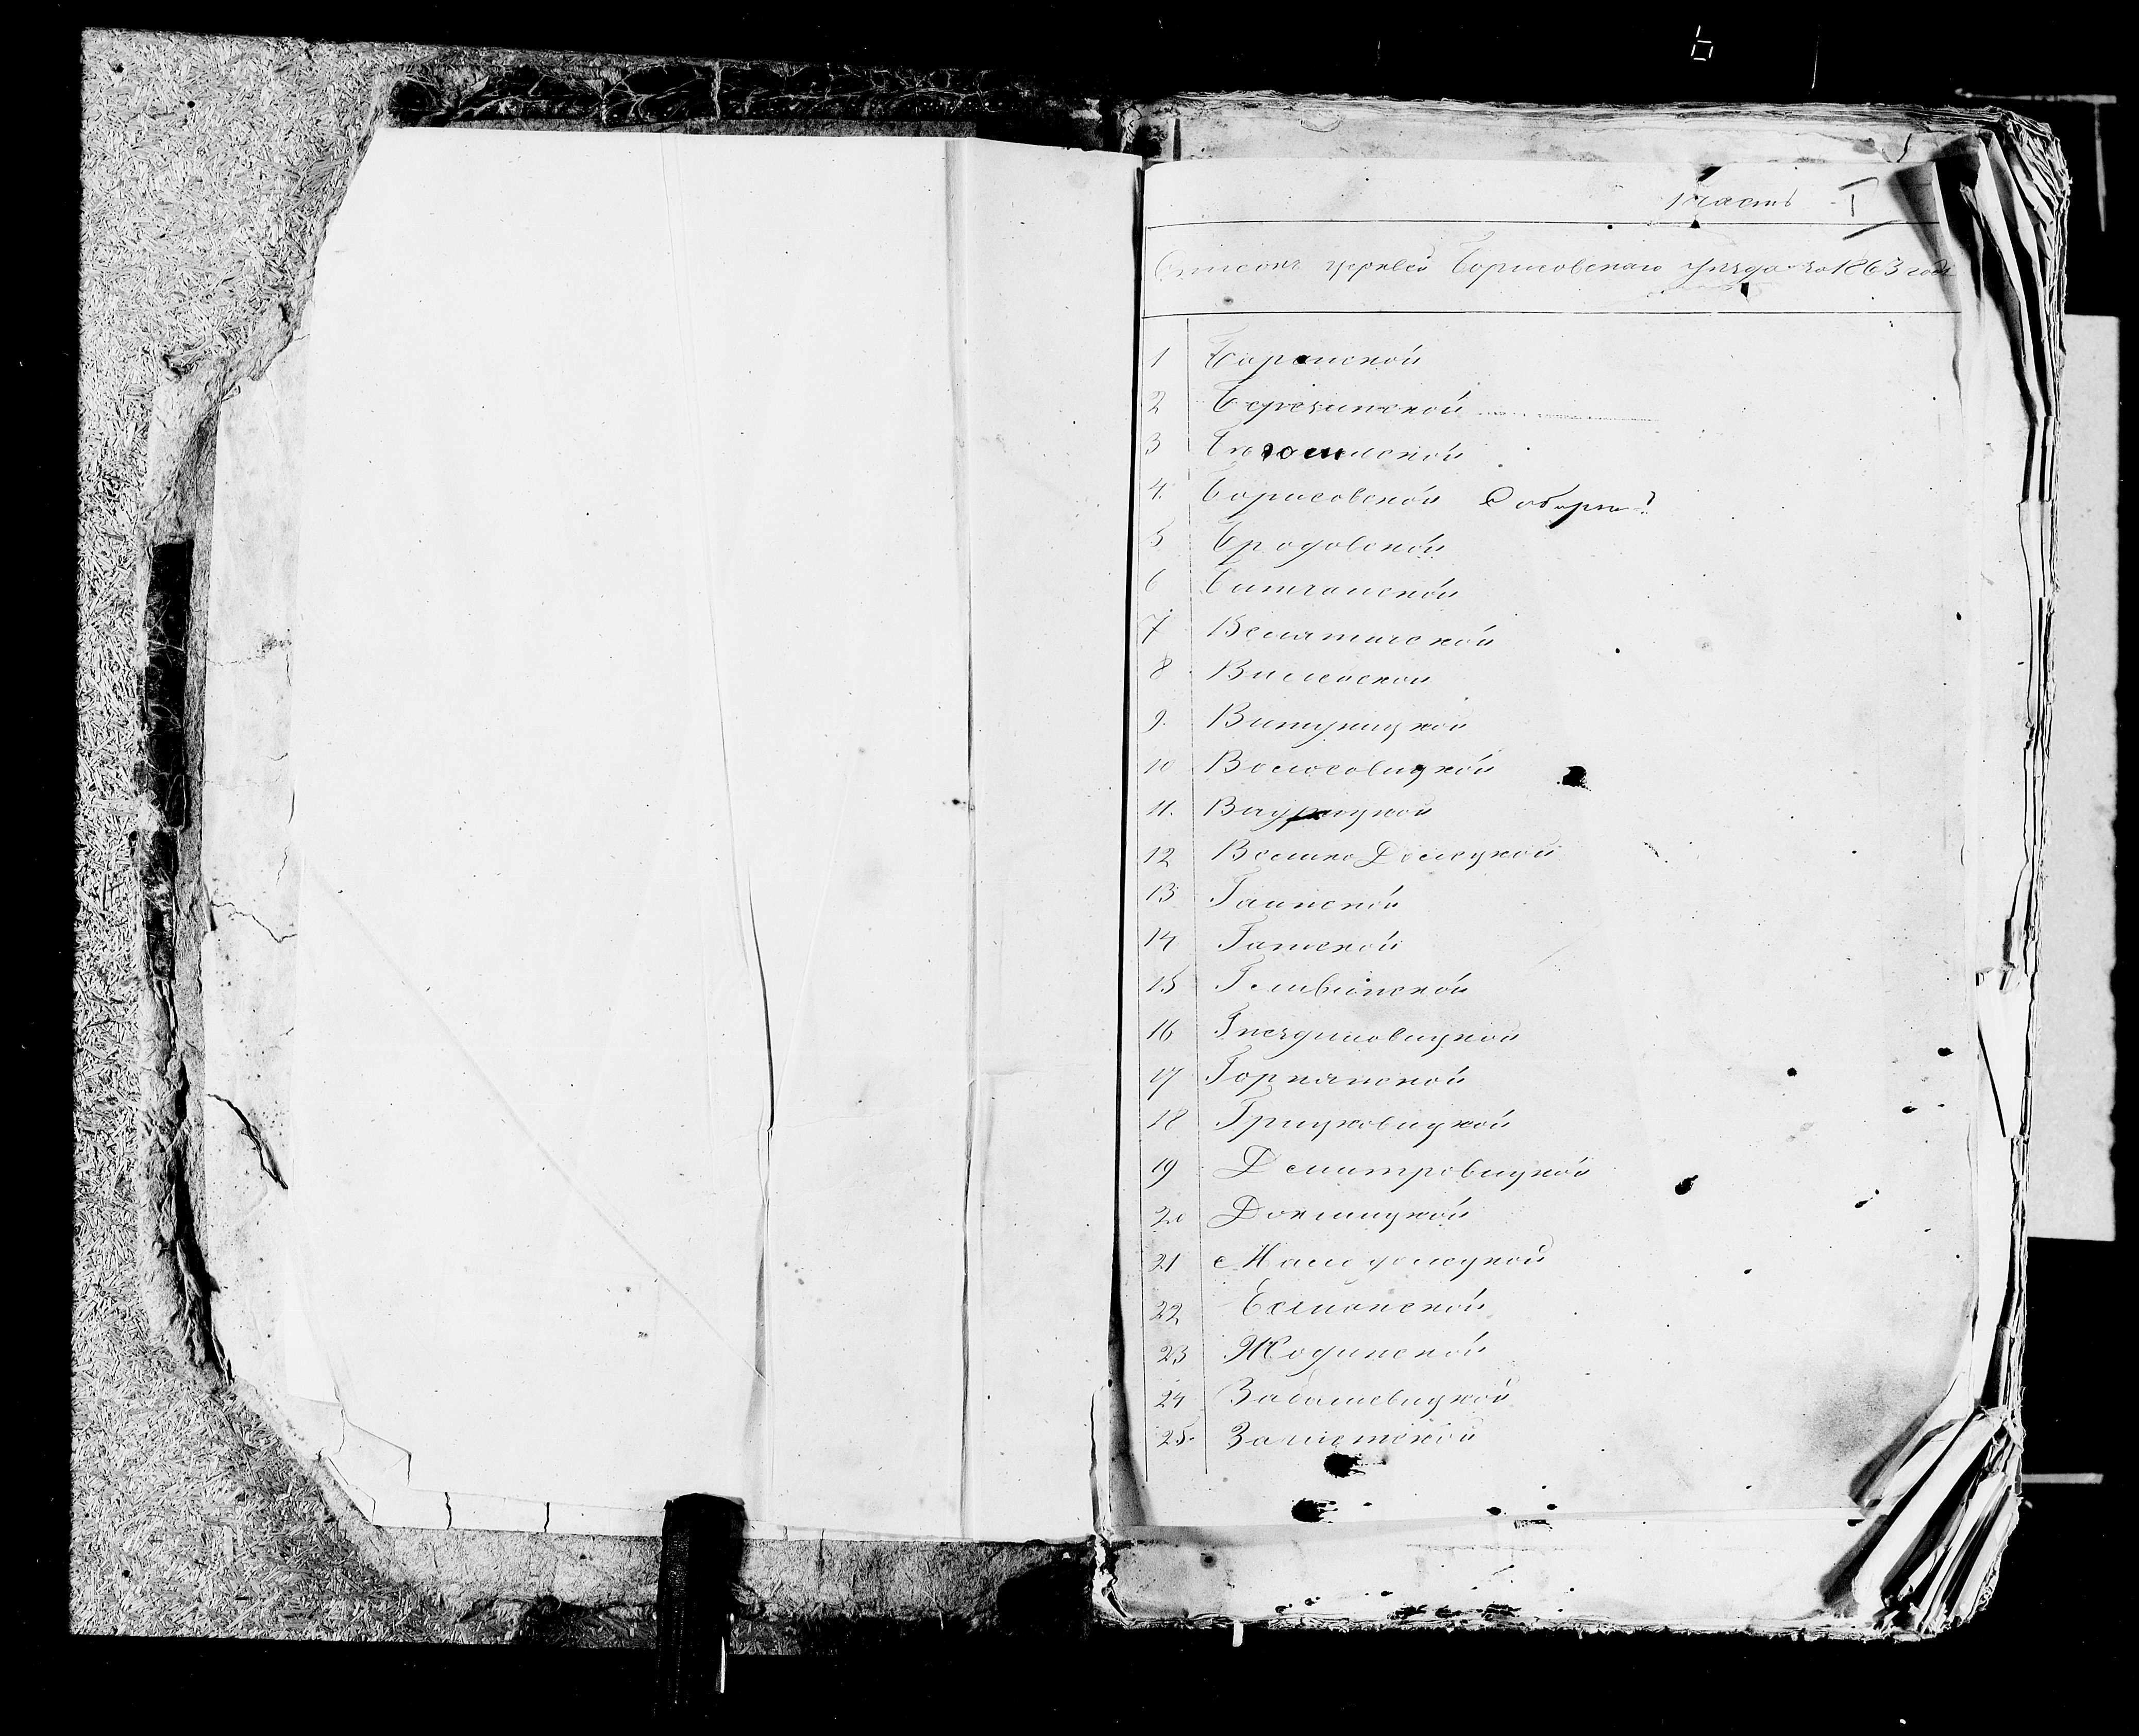 1 часть I
Списокъ церквей Борисовскаго уезда за 1863 годъ
1 Баранской
2 Березинской
3 Бегомльской
4. Борисовской Соборной
5 Бродовской
6 Битчанской
7 Велятичской
8 Вилейской
9. Витуницкой
10 Волосовицкой
11.
12 Велико Долецкой
13 Гаинской
14 Гатской
15 Гливинской
16 Гнездиловицкой
17 Горнянской
18 Грицковицкой
19 Демитровицкой
20 Докшицкой
21 Мало долецкой
22 Есмонской
23 Жодинской
24 Забашевицкой
25. Замстской